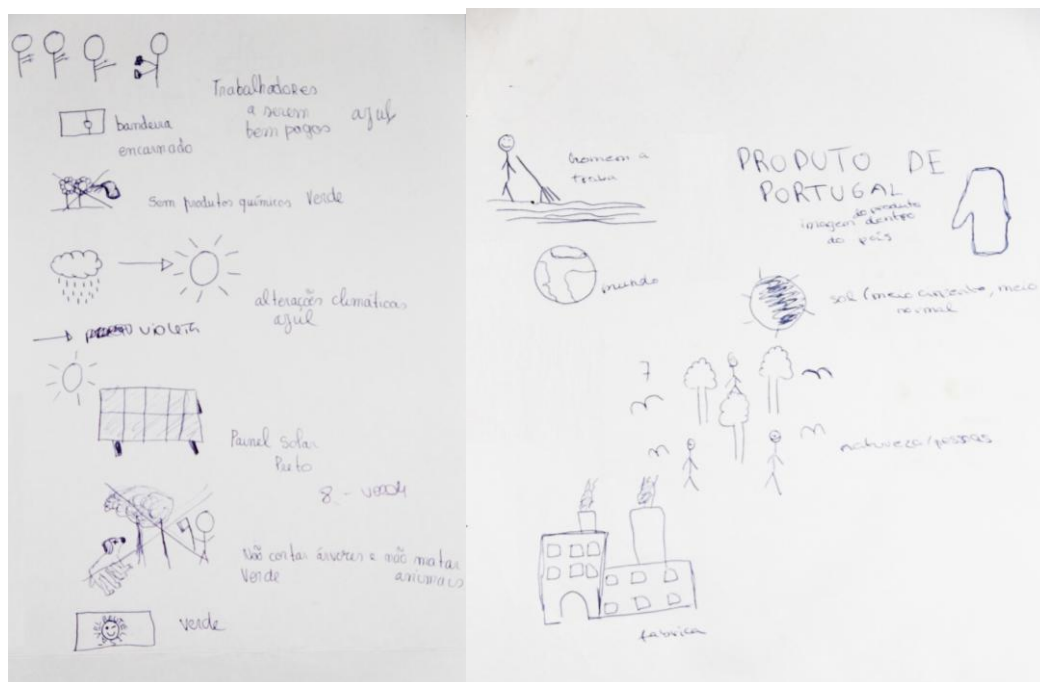 Trabalhadores
a serem azul
bem pagos
bandeira
encarnado
Sem produtos químicos Verde
alterações climáticas
azul
violeta
Painel Solar
Preto
8. - verde
Não cortar árvores e não matar
Verde animais
verde
homem a
traba
PRODUTO DE
PORTUGAL
do produto
imagem dentro
do país
mundo
sol (meio cinzento, meio
normal
7
natureza/pessoas
fabrica